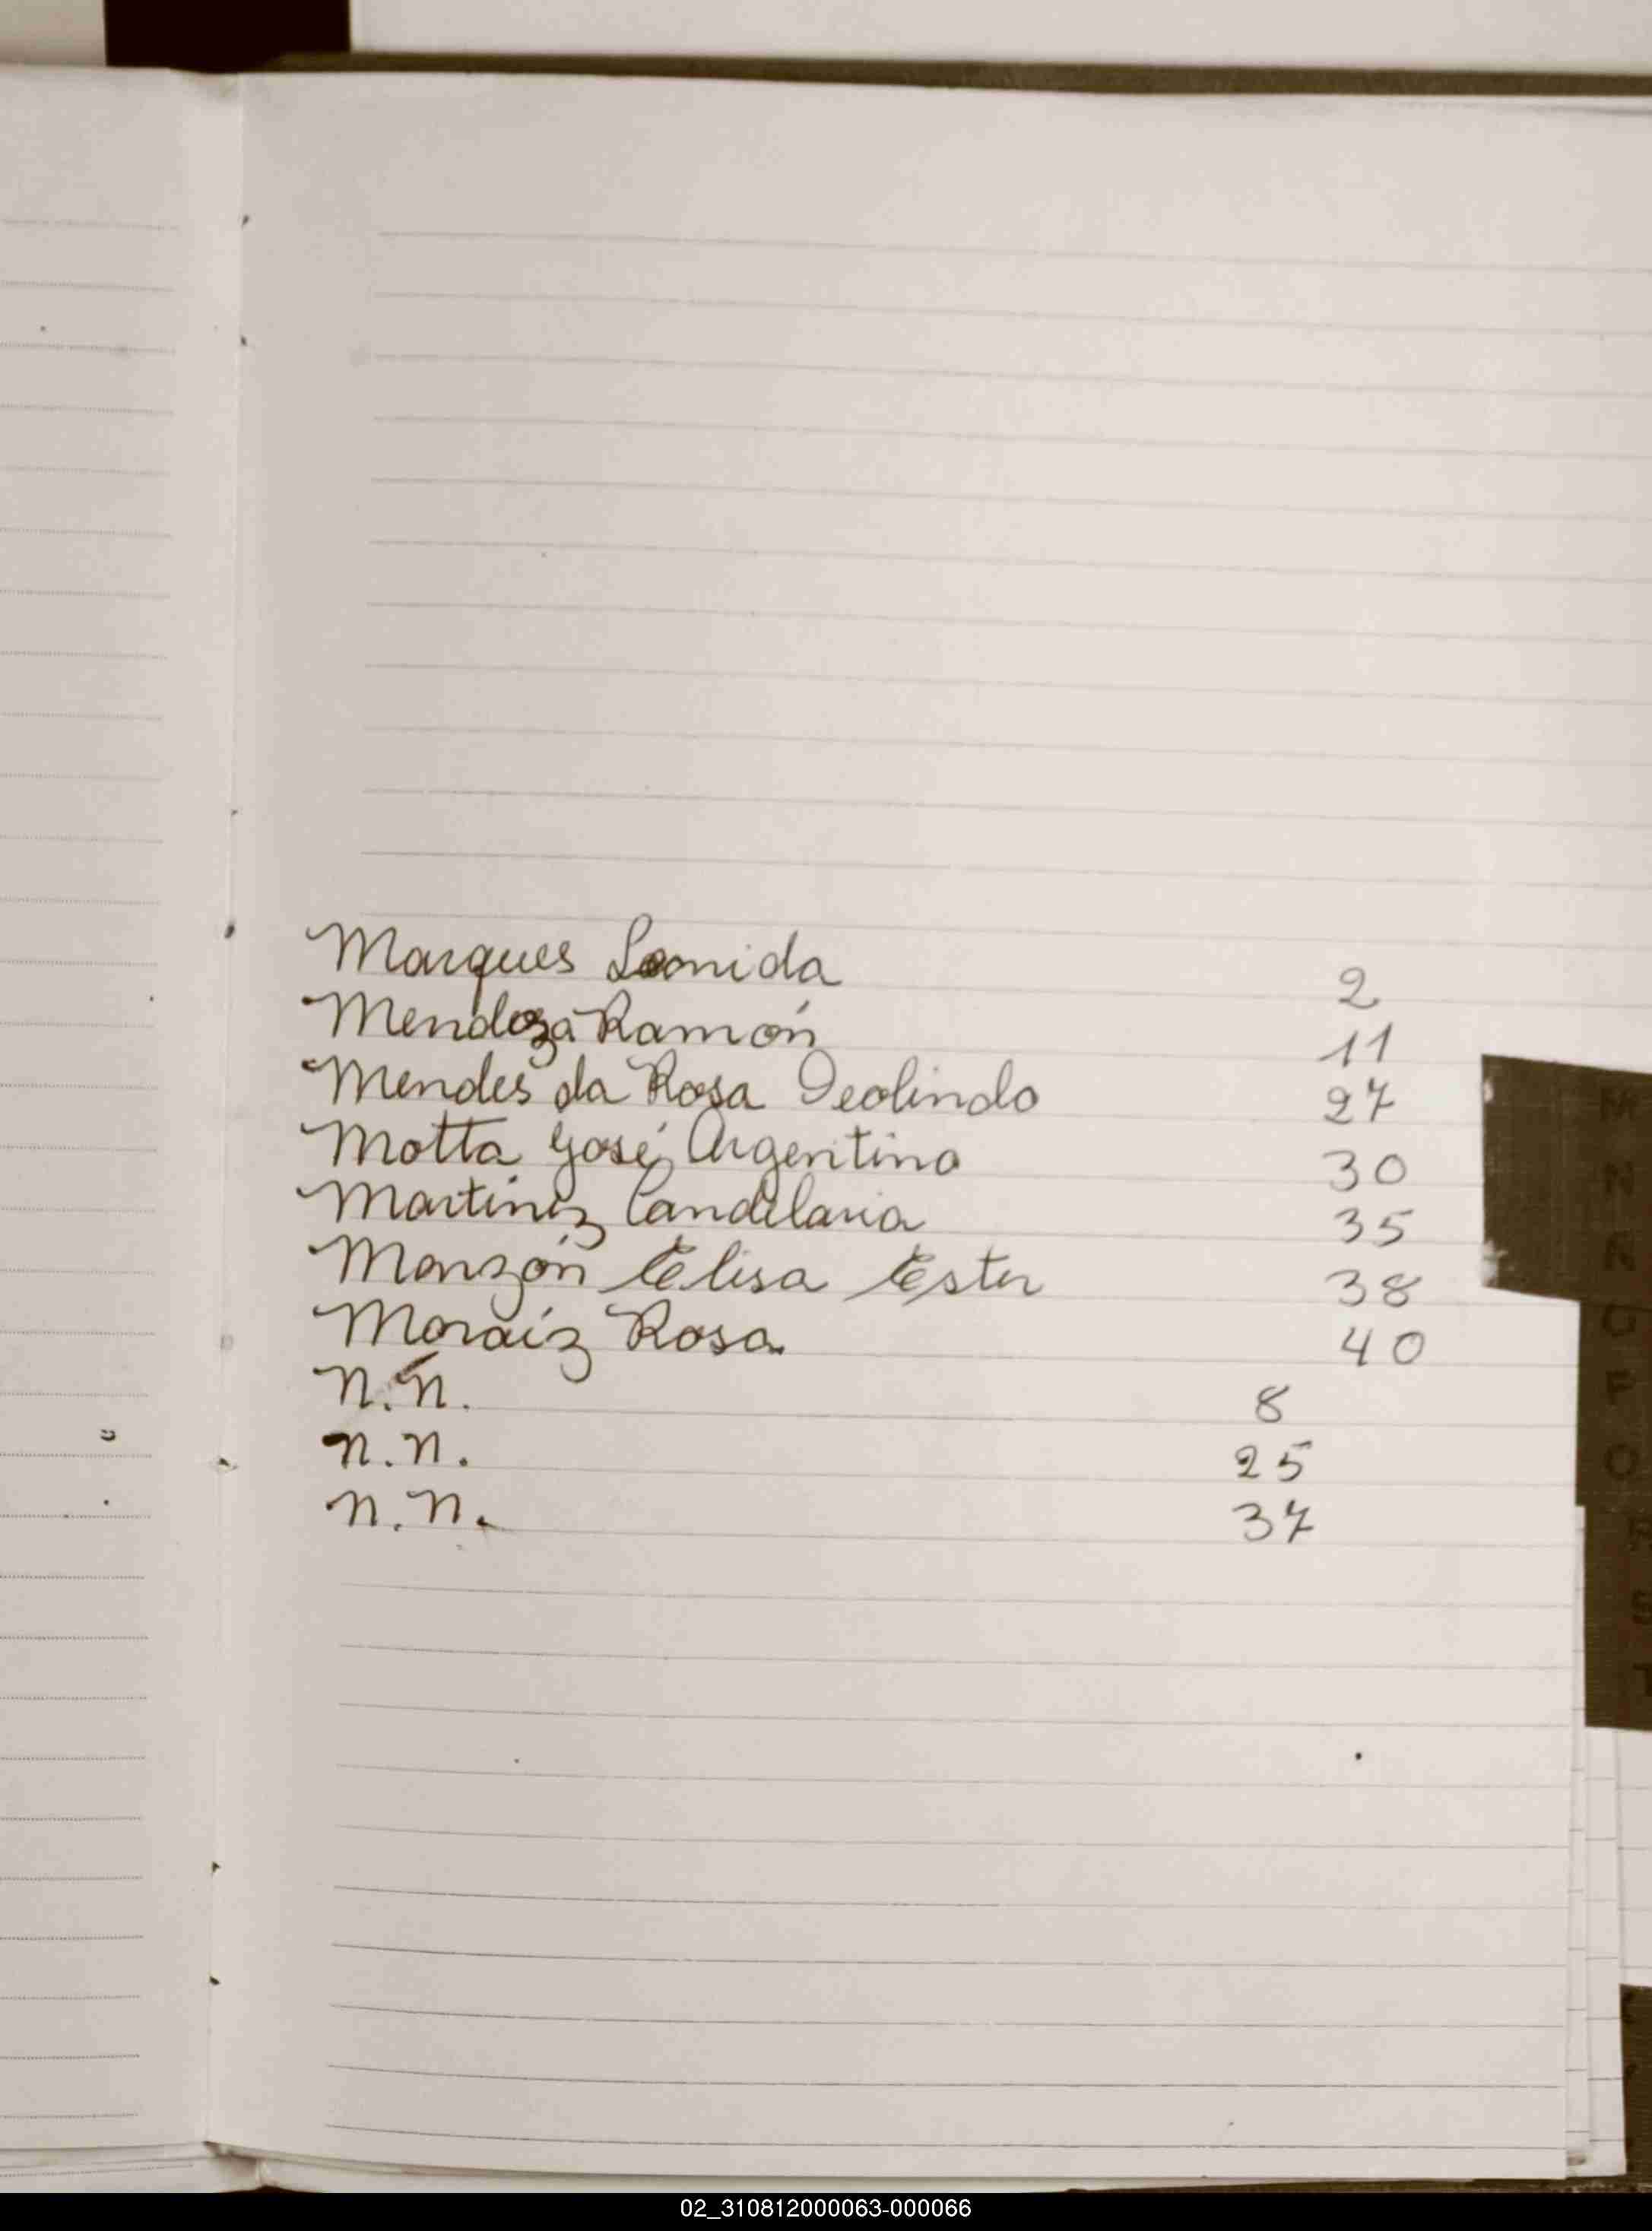 Marques Leonida 2
Mendoza Ramón 11
Mendes da Rosa Deolindo 27
Motta José Argentino 30
Martinez Candelaria 35
Monzón Elisa Ester 38
Moraiz Rosa 40
N.N. 8
N.N. 25
N.N. 37
M
N
Ñ
O
P
Q
R
S
T
02_310812000063-000066